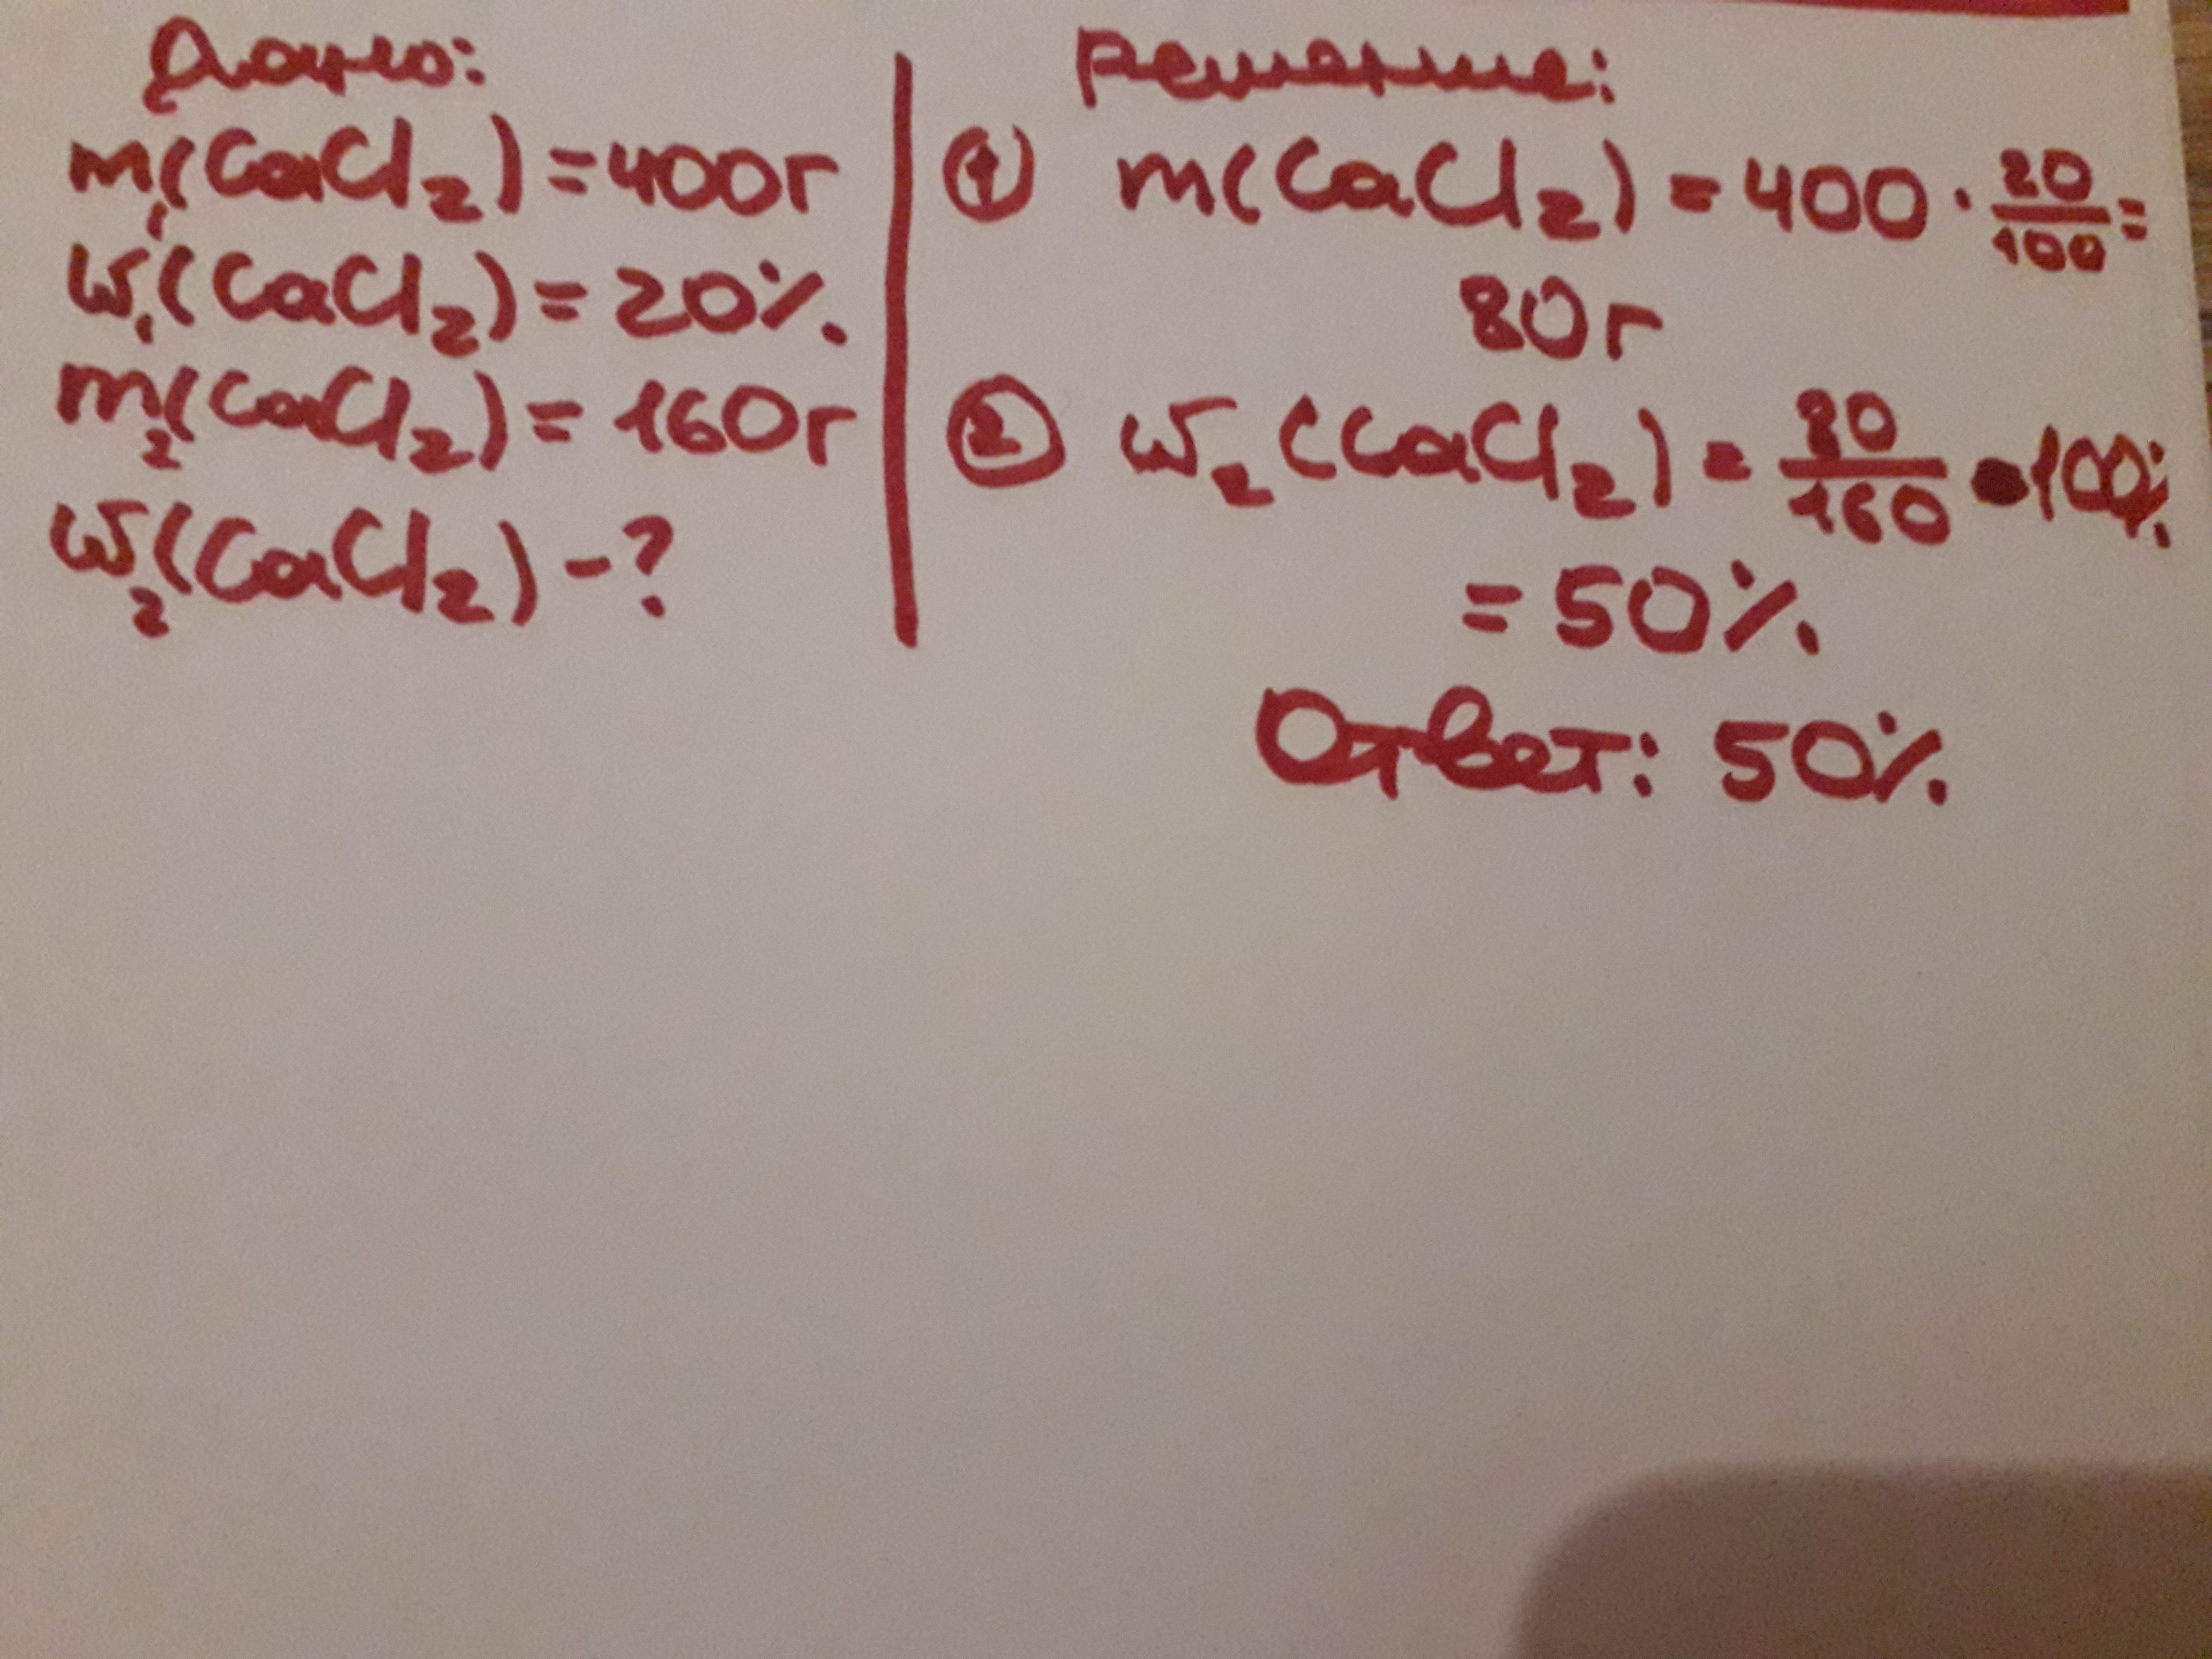 Дано:
m₁(CaCl₂) = 400г
ω₁(CaCl₂) = 20%
m₂(CaCl₂) = 160г
ω₂(CaCl₂) - ?
Решение:
① m(CaCl₂) = 400 · 20/100 =
80г
② ω₂(CaCl₂) = 80/160 · 100%
= 50%
Ответ: 50%